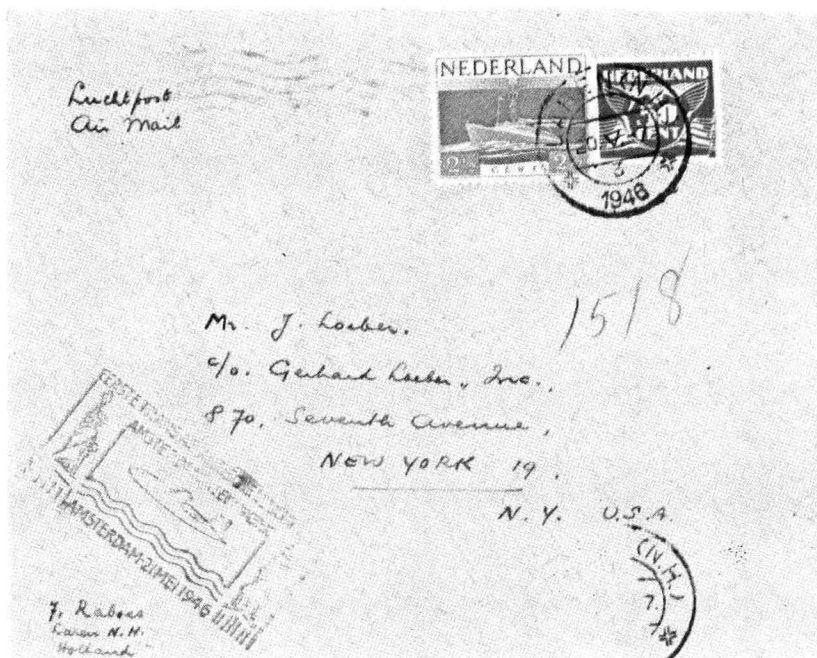 Luchtpost
Air Mail
NEDERLAND
NEDERLAND
CENT
2½ 2
CENT
1946
1518
Mr. J. Loeber.
c/o. Gerhard Loeber, Inc.,
870, Seventh Avenue,
NEW YORK 19.
N.Y. U.S.A.
EERSTE
AMSTERDAM
AMSTERDAM-21 MEI 1946
(N.H.)
Laren N.H.
Holland